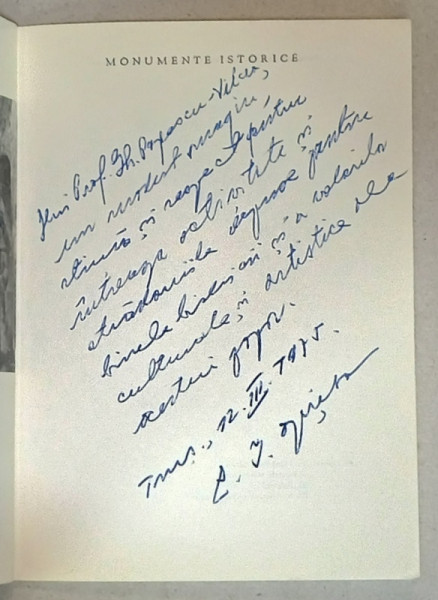 MONUMENTE ISTORICE
Prof. Gh. Popescu-Vîlcea,
un modest omagiu,
stimă și respect pentru
întreaga activitate și
strădaniile depuse pentru
binele bisericii și a valorilor
culturale și artistice ale
acestui popor.
12.III.1975.